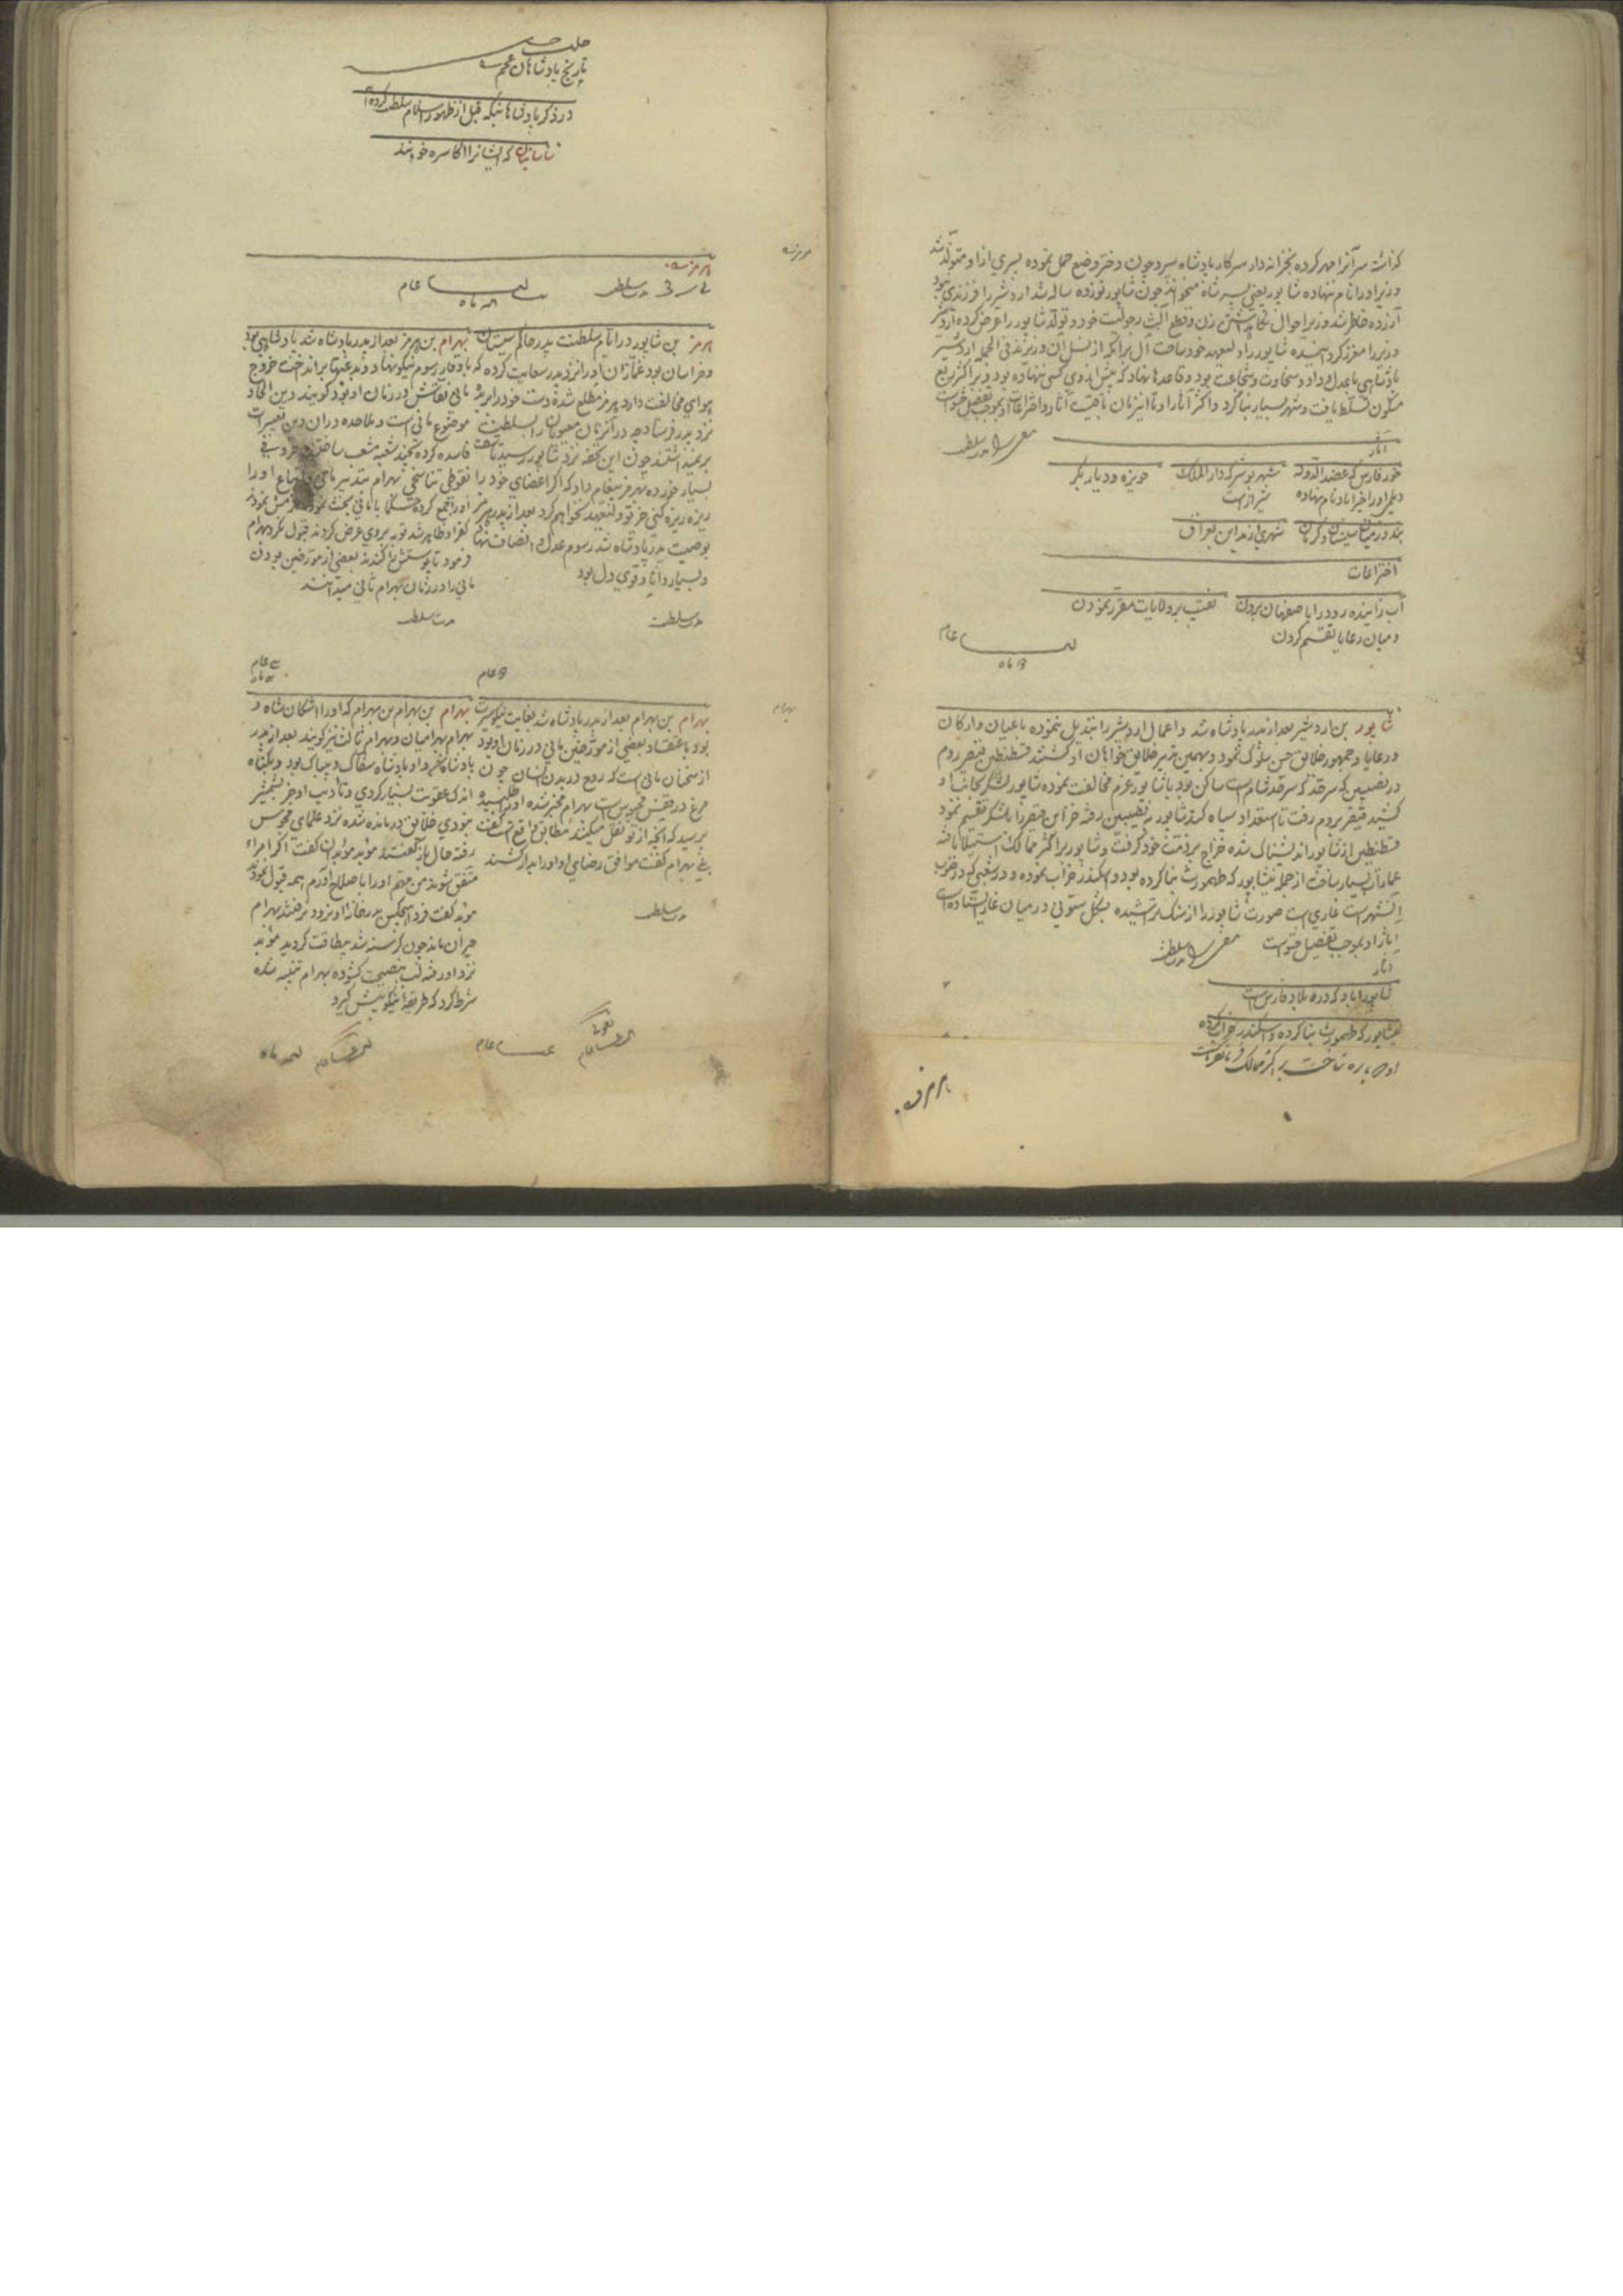 گذاشته سر آنرا مهر کرده بخزانه دار سرکار پادشاه سپرد چون دختر وضع حمل نموده پسری ازو متولد شد
وزیر او را نام ننهاده شاپور یعنی پسر شاه میخواند چون شاپور نوزده ساله شد اردشیر را فرزندی نبود
آزرده خاطر شد وزیر احوال نگاه داشتن زن و قطع آلت رجولیت خود و تولد شاپور را عرض کرده اردشیر
وزیر را معزز گردانیده شاپور را ولیعهد خود ساخت آل برامکه از نسل آن وزیرند فی الجمله اردشیر
پادشاهی با عدل و داد و سخاوت و شجاعت بود و قاعدها نهاد که پیش از وی کسی ننهاده بود و بر اکثر ربع
مسکون تسلط یافت و شهر بسیار بنا کرد و اکثر آثار او تا این زمان باقیست آثار و اختراعات او بموجب تفصیل است
آثار
خوره فارس که عضد الدوله
دیلم او را فیراباد نام نهاده
شهر بوشیر که دار الملک
شیراز است
حویزه و دیار بکر
بند در میان سیستان و کرمان
شهری از مداین بعراق
اختراعات
آب زاینده رود را باصفهان بردن
و میان رعایا تقسیم کردن
نقیب بر ولایات مقرر نمودن
عام
ماه
شاپور بن اردشیر بعد از پدر پادشاه شد و اعمال اردشیر را تبدیل ننموده با عیان و ارکان
و رعایا و جمهور خلایق حسن سلوک نمود و بهمین تدبیر خلایق خواهان او گشتند قسطنطین قیصر روم
در نصیبین که سرقند و سرقند شام است ساکن بود با شاپور عزم مخالفت نموده شاپور لشکر بجانب او
کشید قیصر بروم رفت تا استعداد سپاه کند شاپور به نصیبین رفته خزاین قیصر را بلشکر تقسیم نمود
قسطنطین از شاپور اندیشناک شده خراج بر ذمت خود گرفت و شاپور بر اکثر ممالک استیلا یافته
عمارات بسیار ساخت از جمله نیشاپور که طهمورث بنا کرده بود و اسکندر خراب نموده و در شعبی که در غرب
این شهر است غاریست صورت شاپور را از سنگ تراشیده بشکل ستونی در میان غار ایستاده است
آثار او بموجب تفصیل است
آثار
شاپورآباد که در بلاد فارس است
نیشاپور که طهمورث بنا کرده و اسکندر خراب کرده
بر اکثر ممالک
هرمز
تاریخ پادشاهان عجم
در ذکر پادشاهانیکه قبل از ظهور اسلام سلطنت کرده‌اند
ساسانیان که ایشانرا اکاسره خوانند
هرمز
مدت سلطنت
عام
ماه
هرمز بن شاپور در ایام سلطنت پدر حاکم سیستان
و خراسان بود غمازان او را نزد پدر سعایت کرده که
هوای مخالفت دارد هرمز مطلع شده دست خود را بریده
نزد پدر فرستاد چه در آنزمان معیوبان را بسلطنت
بر نمیداشتند چون این تحفه نزد شاپور رسید تاسف
بسیار خورده بهرمز پیغام داد که اگر اعضای خود را
ریزه ریزه کنی جز تو ولیعهد نخواهم کرد بعد از پدر هرمز
بوصیت پدر پادشاه شد رسوم عدل و انصاف نهاد
و بسیار دانا و قوی دل بود
مدت سلطنت
عام
بهرام بن هرمز بعد از پدر پادشاه شد پادشاهی بود
با وقار رسوم نیکو نهاد و بدعتها بر انداخت خروج
مانی نقاش در زمان او بود گویند دین الحاد
موضوع مانی است و ملاحده در آن دین تغییرات
فاسده کرده بچند شعبه منشعب ساختند
نقوطی تناسخی بهرام بتدبیر مانی و اتباع او را
او را جمع کرده حکما با مانی بحث نموده ملزمش نمودند
کفر او ظاهر شد توبه بر وی عرض کردند قبول نکرد بهرام
فرمود تا پوستش را کندند بعضی از مورخین بودن
مانی را در زمان بهرام ثانی میدانند
مدت سلطنت
عام
ماه
بهرام
بهرام بن بهرام بعد از پدر پادشاه شد بغایت نیکوسیرت
بود باعتقاد بعضی از مورخین مانی در زمان او بود
از سخنان مانی است که روح در بدن انسان چون
مرغ در قفس محبوس است بهرام مخبر شده او را طلبیده
پرسید که آنچه از تو نقل میکنند مطابق واقع است گفت
بلی بهرام گفت موافق رضای او او را بدار کشند
مدت سلطنت
بهرام بن بهرام بن بهرام که او را اشکان شاه و
بهرام بهرامیان و بهرام ثالث نیز گویند بعد از پدر
پادشاه و پادشاه سفاک و بیباک بود و بگناه
اندک عقوبت بسیار کردی و تادیب او جز بشمشیر
نبودی خلایق درمانده شده نزد علمای مجوس
رفته حال باز گفتند موبد موبدان گفت اگر امراء
متفق شوند من بهتم او را باصلاح آورم همه قبول نمودند
موبد گفت فردا هیچکس بدر خانه او نرود نرفتند بهرام
حیران ماند چون گرسنه شد بیطاقت گردید موبد
نزد او رفته لب بنصیحت گشوده بهرام متنبه شده
شرط کرد که طریقه نیکو پیش گیرد
عام
عام
ماه